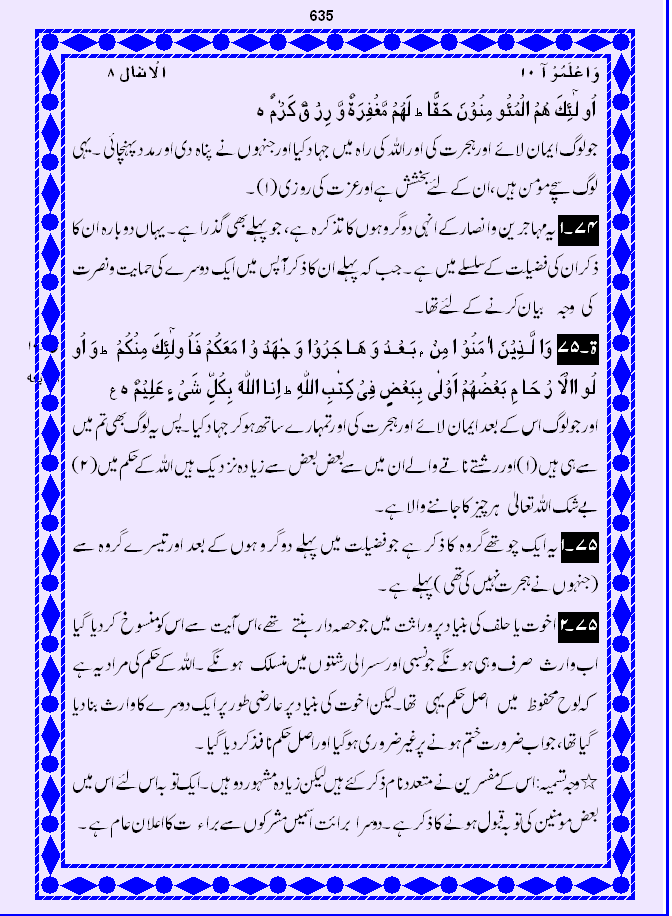 635
وَاعْلَمُوْآ ۱۰ الْاَنْفَال ۸
اُولٰٓئِكَ هُمُ الْمُئُو مِنُوْنَ حَقًّا ؕ لَهُمْ مَّغْفِرَةٌ وَّ رِزْ قٌ كَرِیْمٌ ہ
جولوگ ایمان لائے اور ہجرت کی اور اللہ کی راہ میں جہاد کیا اور جنہوں نے پناہ دی اور مدد پہنچائی ۔ یہی
لوگ سچے مومن ہیں، ان کے لئے بخشش ہے اور عزت کی روزی (۱)۔
۷۴۔۱ یہ مہاجرین و انصار کے انہی دو گروہوں کا تذکرہ ہے، جو پہلے بھی گذرا ہے۔ یہاں دوبارہ ان کا
ذکر ان کی فضیلت کے سلسلے میں ہے۔ جب کہ پہلے ان کا ذکر آپس میں ایک دوسرے کی حمایت و نصرت
کی وجہ بیان کرنے کے لئے تھا۔
ۃ۔۷۵ وَا لَّذِیْنَ اٰ مَنُوْ ا مِنْۢ بَعْدُ وَ هَا جَرُوْا وَ جٰهَدُ وْ ا مَعَكُمْ فَاُ ولٰٓئِكَ مِنْكُمْ ؕ وَ اُو
لُو االْاَ رْ حَا مِ بَعْضُهُمْ اَوْلٰى بِبَعْضٍ فِیْ كِتٰبِ اللّٰهِ ؕ اِنا اللّٰهَ بِكُلِّ شَیْ ءٍ عَلِیْمٌ ہ ع
اور جو لوگ اس کے بعد ایمان لائے اور ہجرت کی اور تمہارے ساتھ ہو کر جہاد کیا۔ پس یہ لوگ بھی تم میں
سے ہی ہیں (۱) اور رشتے ناتے والے ان میں سے بعض بعض سے زیادہ نزدیک ہیں اللہ کے حکم میں (۲)
بے شک اللہ تعالیٰ ہر چیز کا جاننے والا ہے۔
۷۵۔۱ یہ ایک چوتھے گروہ کا ذکر ہے جو فضیلت میں پہلے دو گروہوں کے بعد اور تیسرے گروہ سے
(جنہوں نے ہجرت نہیں کی تھی) پہلے ہے۔
۷۵۔۲ اخوت یا حلف کی بنیاد پر وراثت میں جو حصہ دار بنتے تھے، اس آیت سے اس کو منسوخ کر دیا گیا
اب وارث صرف وہی ہونگے جو نسبی اور سسرالی رشتوں میں منسلک ہونگے۔ اللہ کے حکم کی مراد یہ ہے
کہ لوح محفوظ میں اصل حکم یہی تھا۔ لیکن اخوت کی بنیاد پر عارضی طور پر ایک دوسرے کا وارث بنا دیا
گیا تھا، جو اب ضرورت ختم ہونے پر غیر ضروری ہوگیا اور اصل حکم نافذ کر دیا گیا۔
☆ وجہ تسمیہ: اس کے مفسرین نے متعدد نام ذکر کئے ہیں لیکن زیادہ مشہور دو ہیں۔ ایک توبہ اس لئے اس میں
بعض مومنین کی توبہ قبول ہونے کا ذکر ہے۔ دوسرا برائت اسمیں مشرکوں سے براء ت کا اعلان عام ہے۔